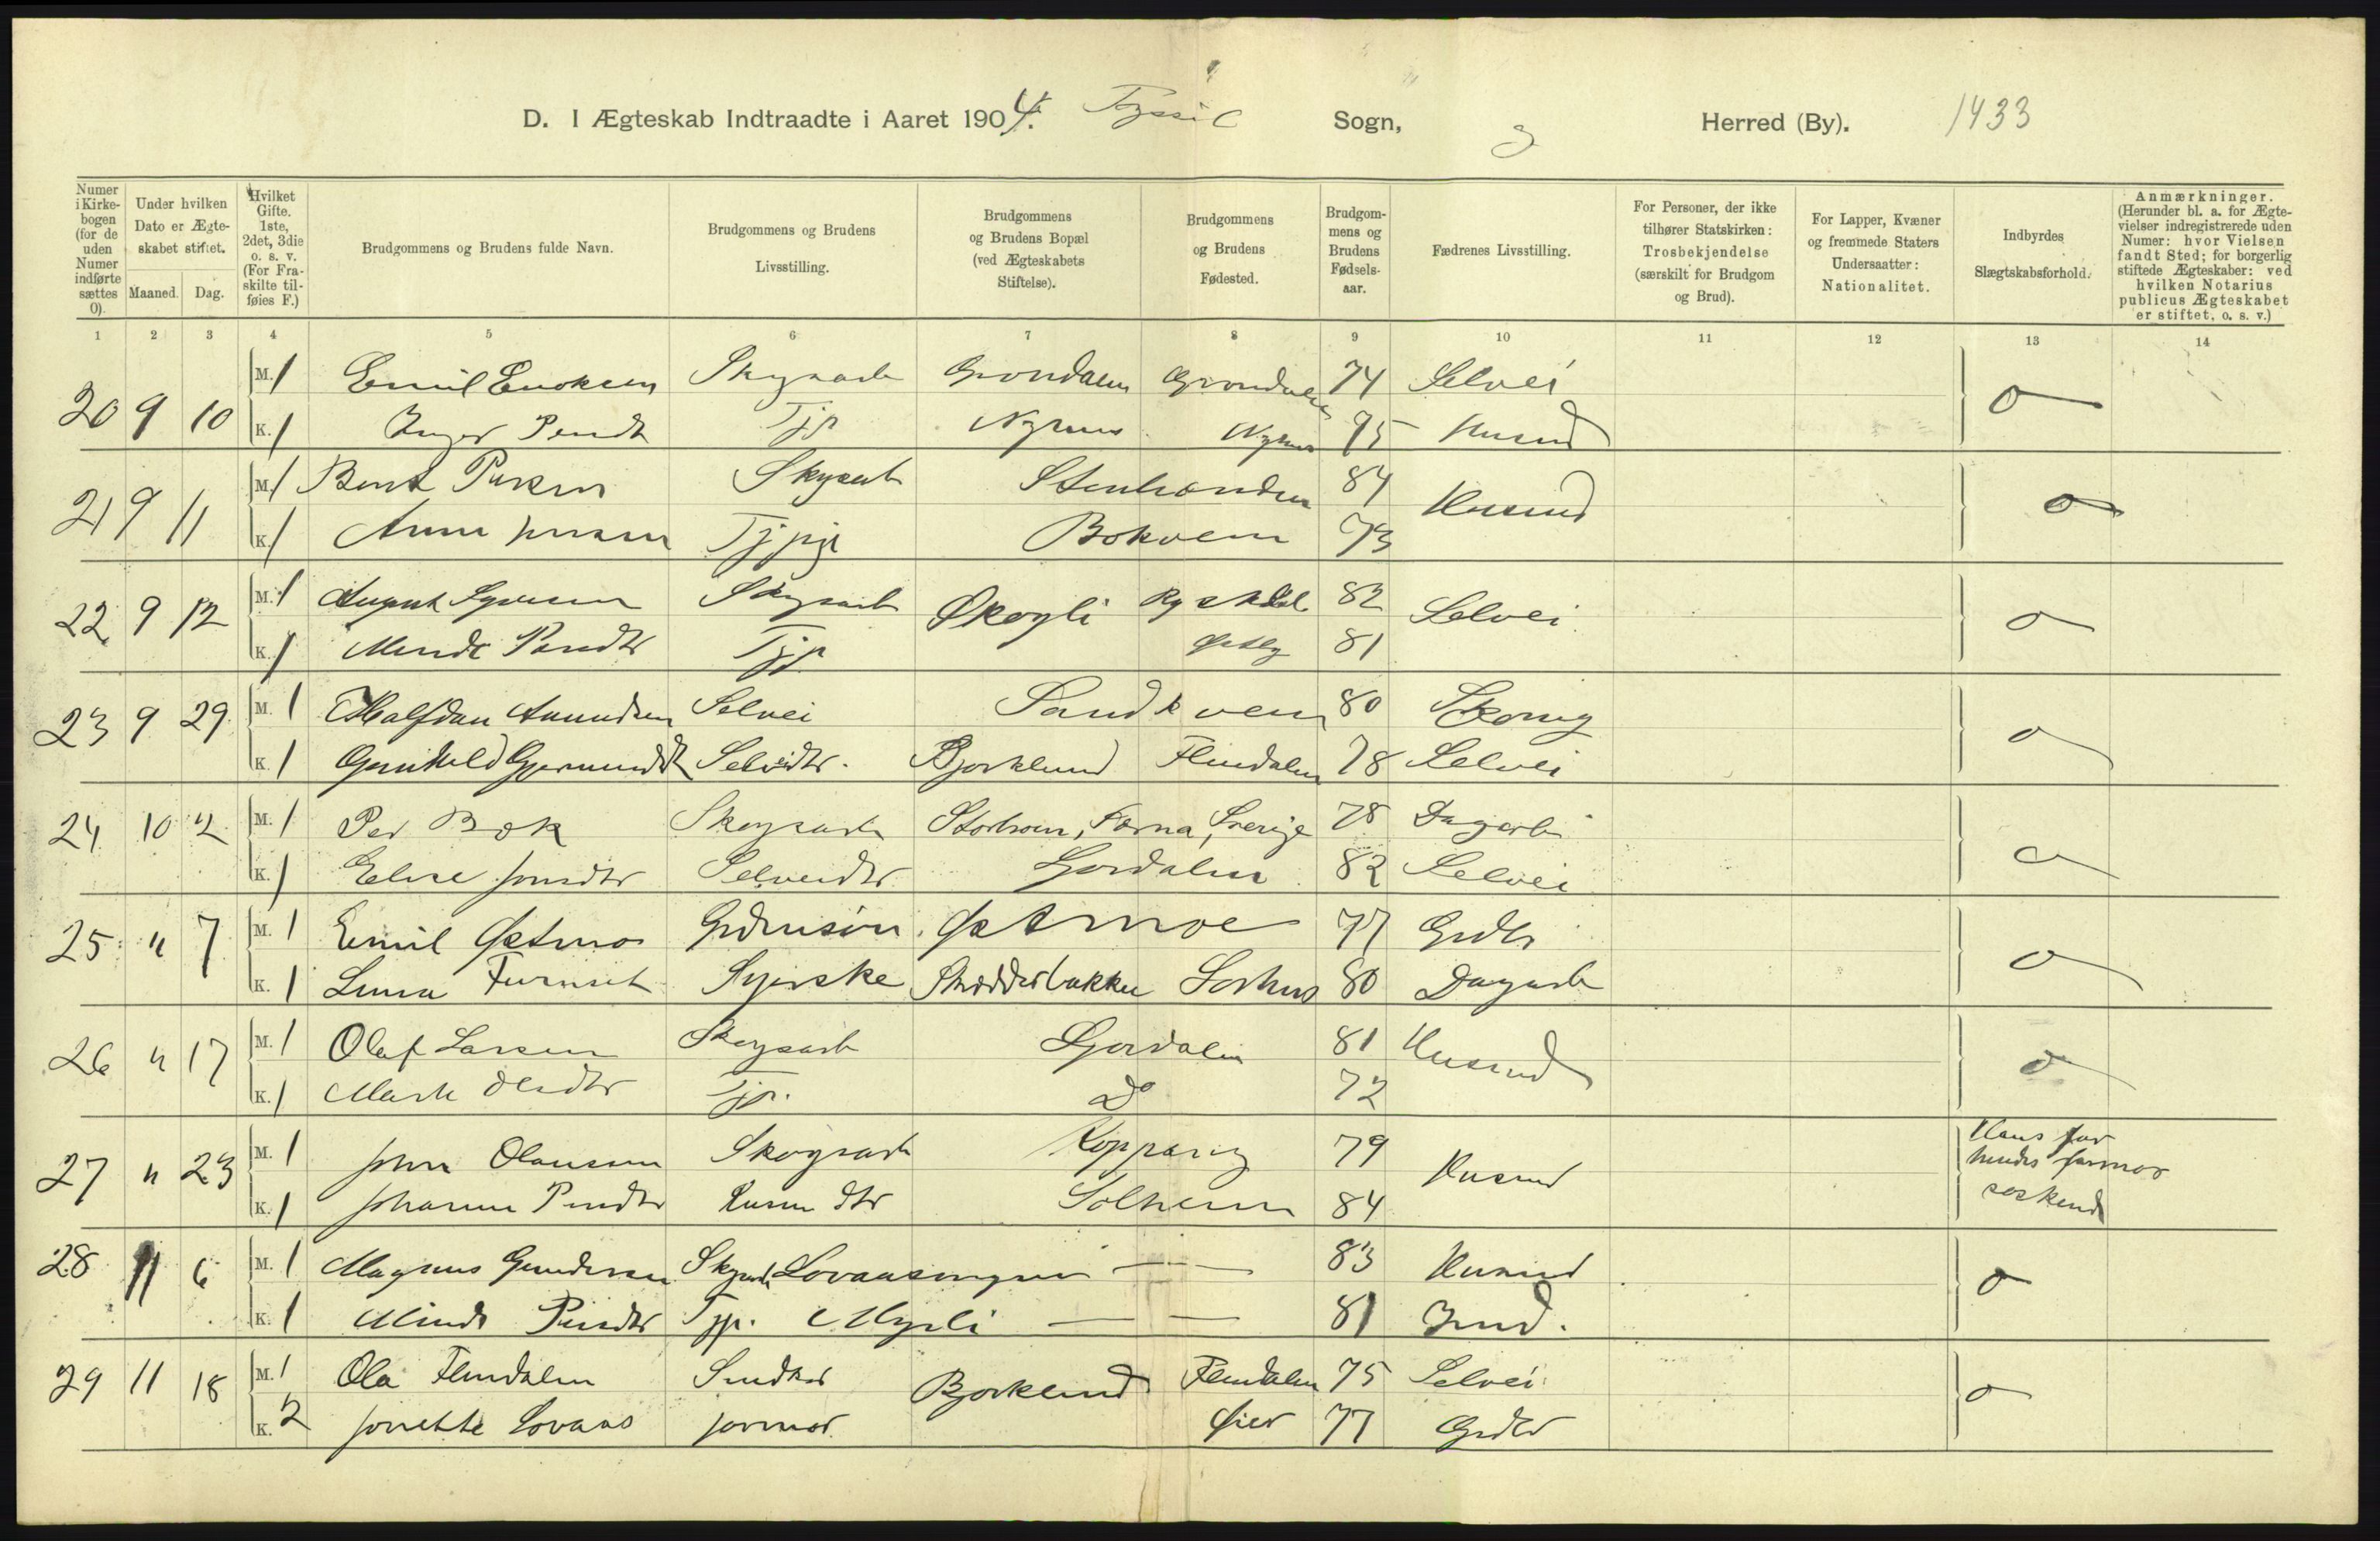 D. I Ægteskab Indtraadte i Aaret 1904. Trysil Sogn, Herred (By). 1433
Numer i Kirkebogen (for de uden Numer indførte sættes 0).
Under hvilken Dato er Ægteskabet stiftet.
Maaned. Dag.
Hvilket Gifte. 1ste, 2det, 3die o. s. v. (For Fraskilte tilføies F.)
Brudgommens og Brudens fulde Navn.
Brudgommens og Brudens Livsstilling.
Brudgommens og Brudens Bopæl (ved Ægteskabets Stiftelse).
Brudgommens og Brudens Fødested.
Brudgommens og Brudens Fødselsaar.
Fædrenes Livsstilling.
For Personer, der ikke tilhører Statskirken: Trosbekjendelse (særskilt for Brudgom og Brud).
For Lapper, Kvæner og fremmede Staters Undersaatter: Nationalitet.
Indbyrdes Slægtskabsforhold.
Anmærkninger. (Herunder bl. a. for Ægtevielser indregistrerede uden Numer: hvor Vielsen fandt Sted; for borgerlig stiftede Ægteskaber: ved hvilken Notarius publicus Ægteskabet er stiftet, o. s. v.)
1 2 3 4 5 6 7 8 9 10 11 12 13 14
20 9 10 M. 1 Emil Enoksen Skogsarb Grøndalen Grøndalen 74 Selvei 0
K. 1 Inger Persdt Tjp Nyhus Nyhus 75 Husmd
21 9 11 M. 1 Bernt Skogsarb 84 Husmd 0
K. 1 Anna Tjpige Bokvem 73
22 9 12 M. 1 August Skogsarb Økogli 82 Selvei 0
K. 1 Persdtr Tjp 81
23 9 29 M. 1 Halfdan Amundsen Selvei Sandkvem 80 0
K. 1 Gunhild Gjermundsdt Selveidtr. Bjorklund Flendalen 78 Selvei
24 10 2 M. 1 Per Bok Skogsarb Särna, Sverige 78 Dagarb 0
K. 1 Elise Jonsdtr Selveidtr Ljørdalen 82 Selvei
25 " 7 M. 1 Emil Østmo Grdmsøn Østmoe 77 Grdbr 0
K. 1 Furuset Syerske Skrædderbakken Sorhus 80 Dagarb
26 " 17 M. 1 Olaf Larsen Skogsarb Ljørdalen 81 Husmd 0
K. 1 Olsdtr Tjp. Do 72
27 " 23 M. 1 John Olaussen Skogsarb Koppang 79 Husmd Hans far
K. 1 Johanne Persdtr Husm dtr Solheim 84 hendes farmor søskende
28 11 6 M. 1 Magnus Gundersen Skogsarb — — 83 Husmd 0
K. 1 Persdtr Tjp. Myrli — — 81 Insd.
29 11 18 M. 1 Ola Flendalen Snedker Bjorklund Flendalen 75 Selvei 0
K. 2 Jonette Lovaas jormor Øier 77 Grdbr